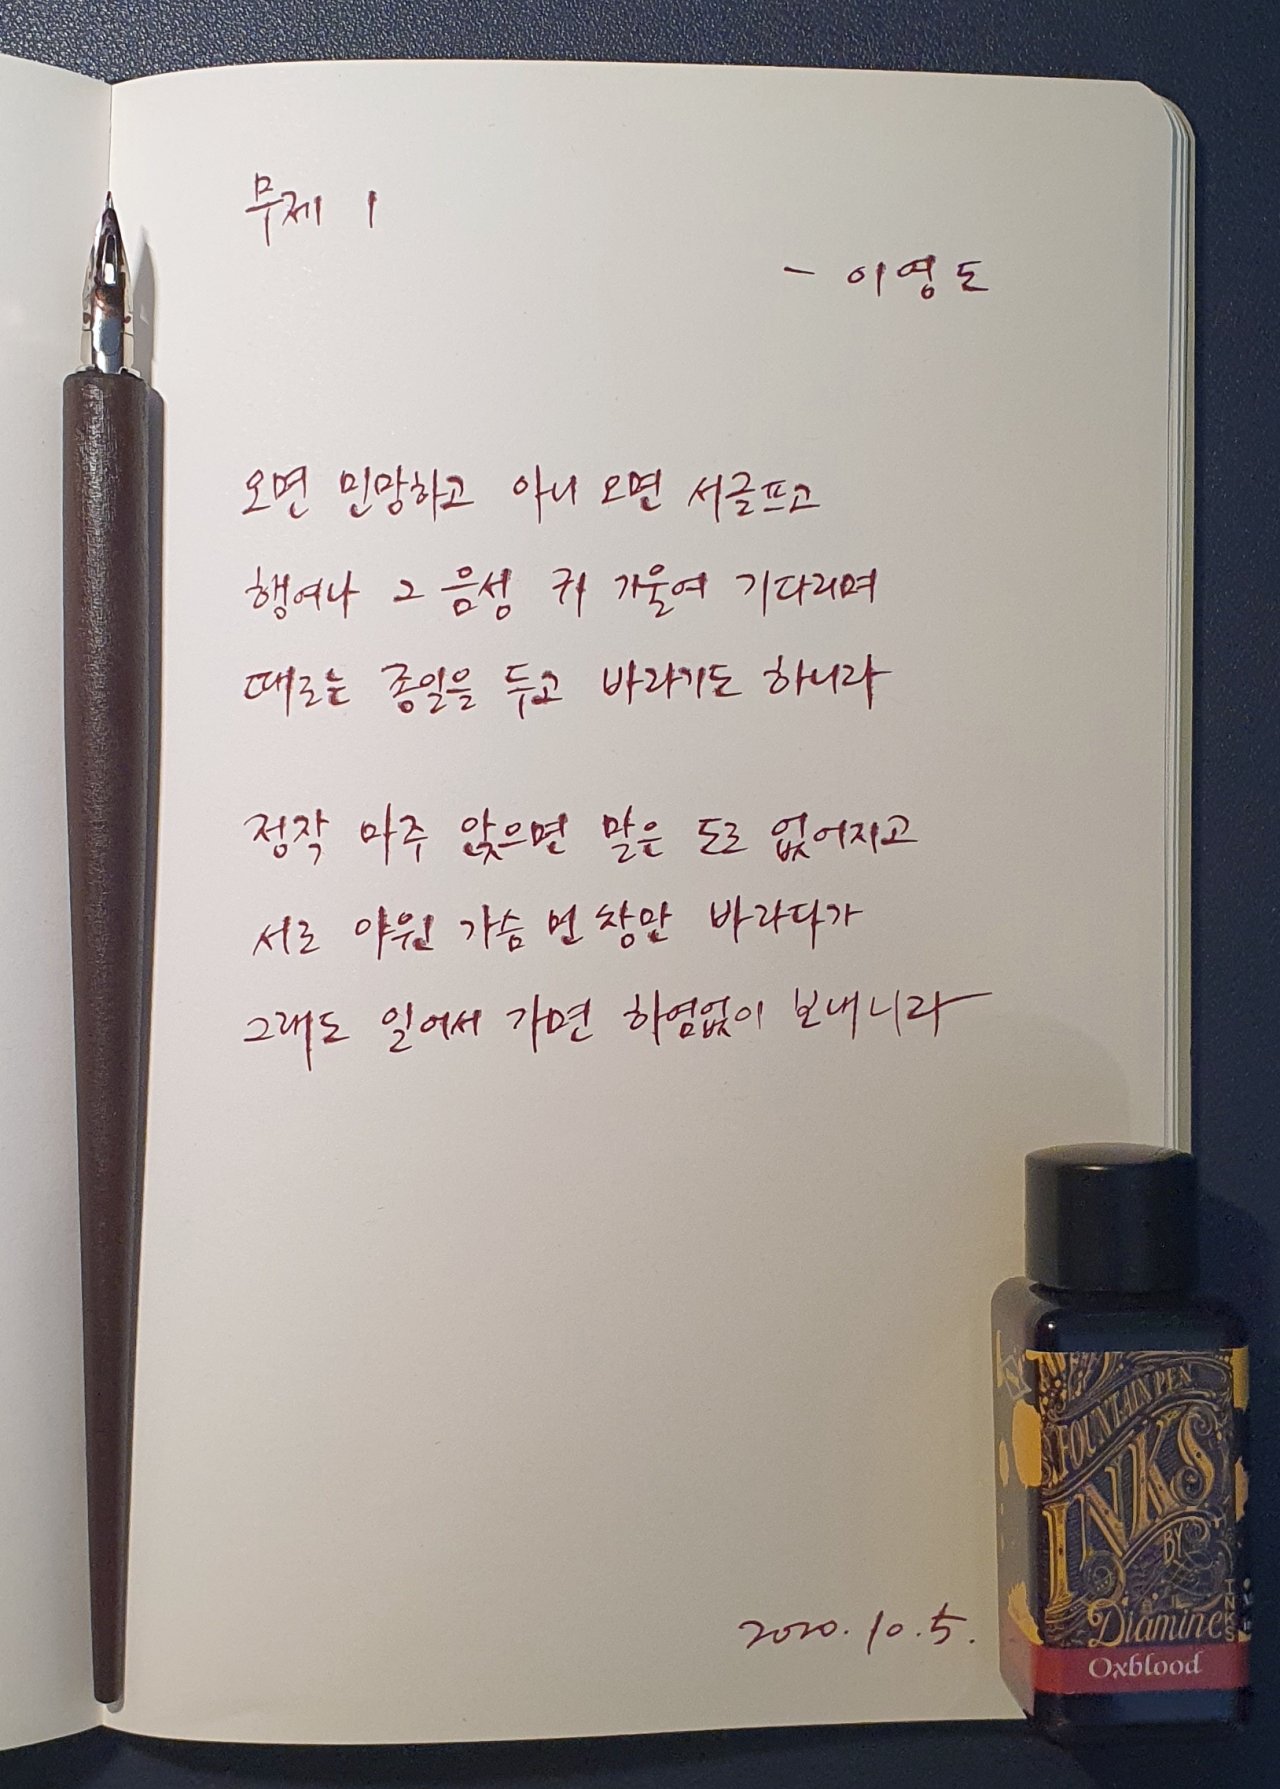 무제 1
- 이영도
오면 민망하고 아니 오면 서글프고
행여나 그 음성 귀 기울여 기다리며
때로는 종일을 두고 바라기도 하니라
정작 마주 앉으면 말은 도로 없어지고
서로 야윈 가슴 먼 창만 바라다가
그래도 일어서 가면 하염없이 보내니라
2020. 10. 5.
FOUNTAIN PEN
INKS
BY
Diamine
Oxblood
INKS